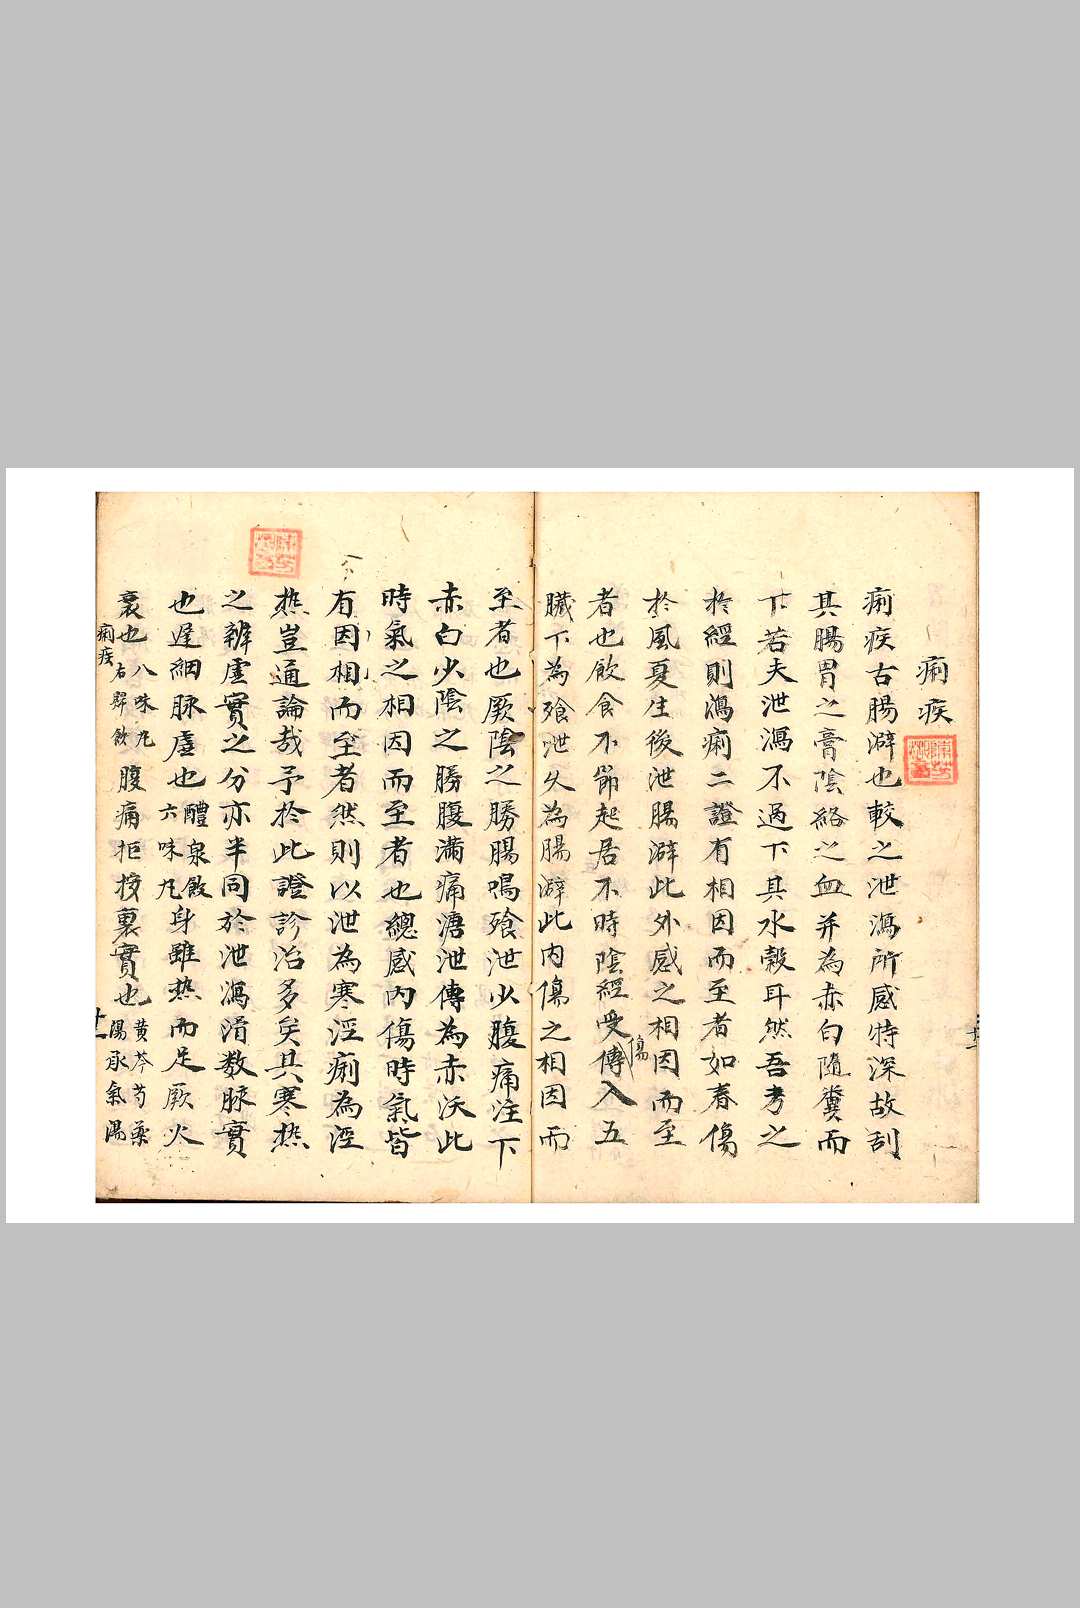 痢疾
痢疾古腸澼也較之泄瀉所感特深故刮
其腸胃之膏陰絡之血并為赤白隨糞而
下若夫泄瀉不過下其水穀耳然吾考之
於經則瀉痢二證有相因而至者如春傷
於風夏生後泄腸澼此外感之相因而至
者也飲食不節起居不時陰經受傳入五
傷
臟下為飱泄久為腸澼此內傷之相因而
至者也厥陰之勝腸鳴飱泄少腹痛注下
赤白少陰之勝腹滿痛溏泄傳為赤沃此
時氣之相因而至者也總感內傷時氣皆
有因相而至者然則以泄為寒淫痢為淫
熱豈通論哉予於此證診治多矣其寒熱
之辨虛實之分亦半同於泄瀉滑数脉實
也遲細脉虛也醴泉飲六味九身雖热而足厥火
衰也八味九右歸飲腹痛拒按裏實也黃芩芍藥湯承氣湯
痢疾
十一